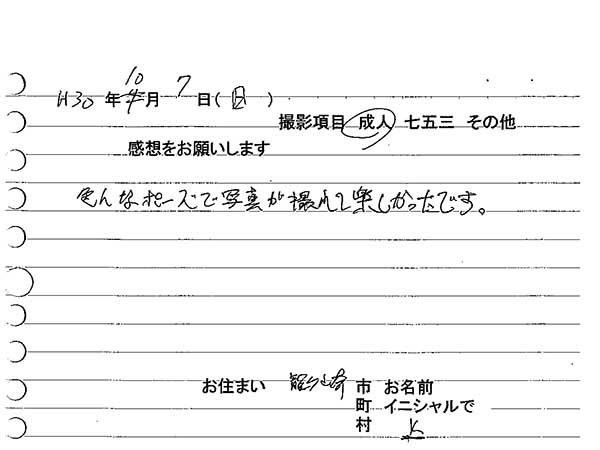 10
H30 年 月 7 日 ( 日 )
撮影項目 成人 七五三 その他
感想をお願いします
色んなポーズで写真が撮れて楽しかったです。
お住まい 龍ケ崎 市 お名前
町 イニシャルで
村 K